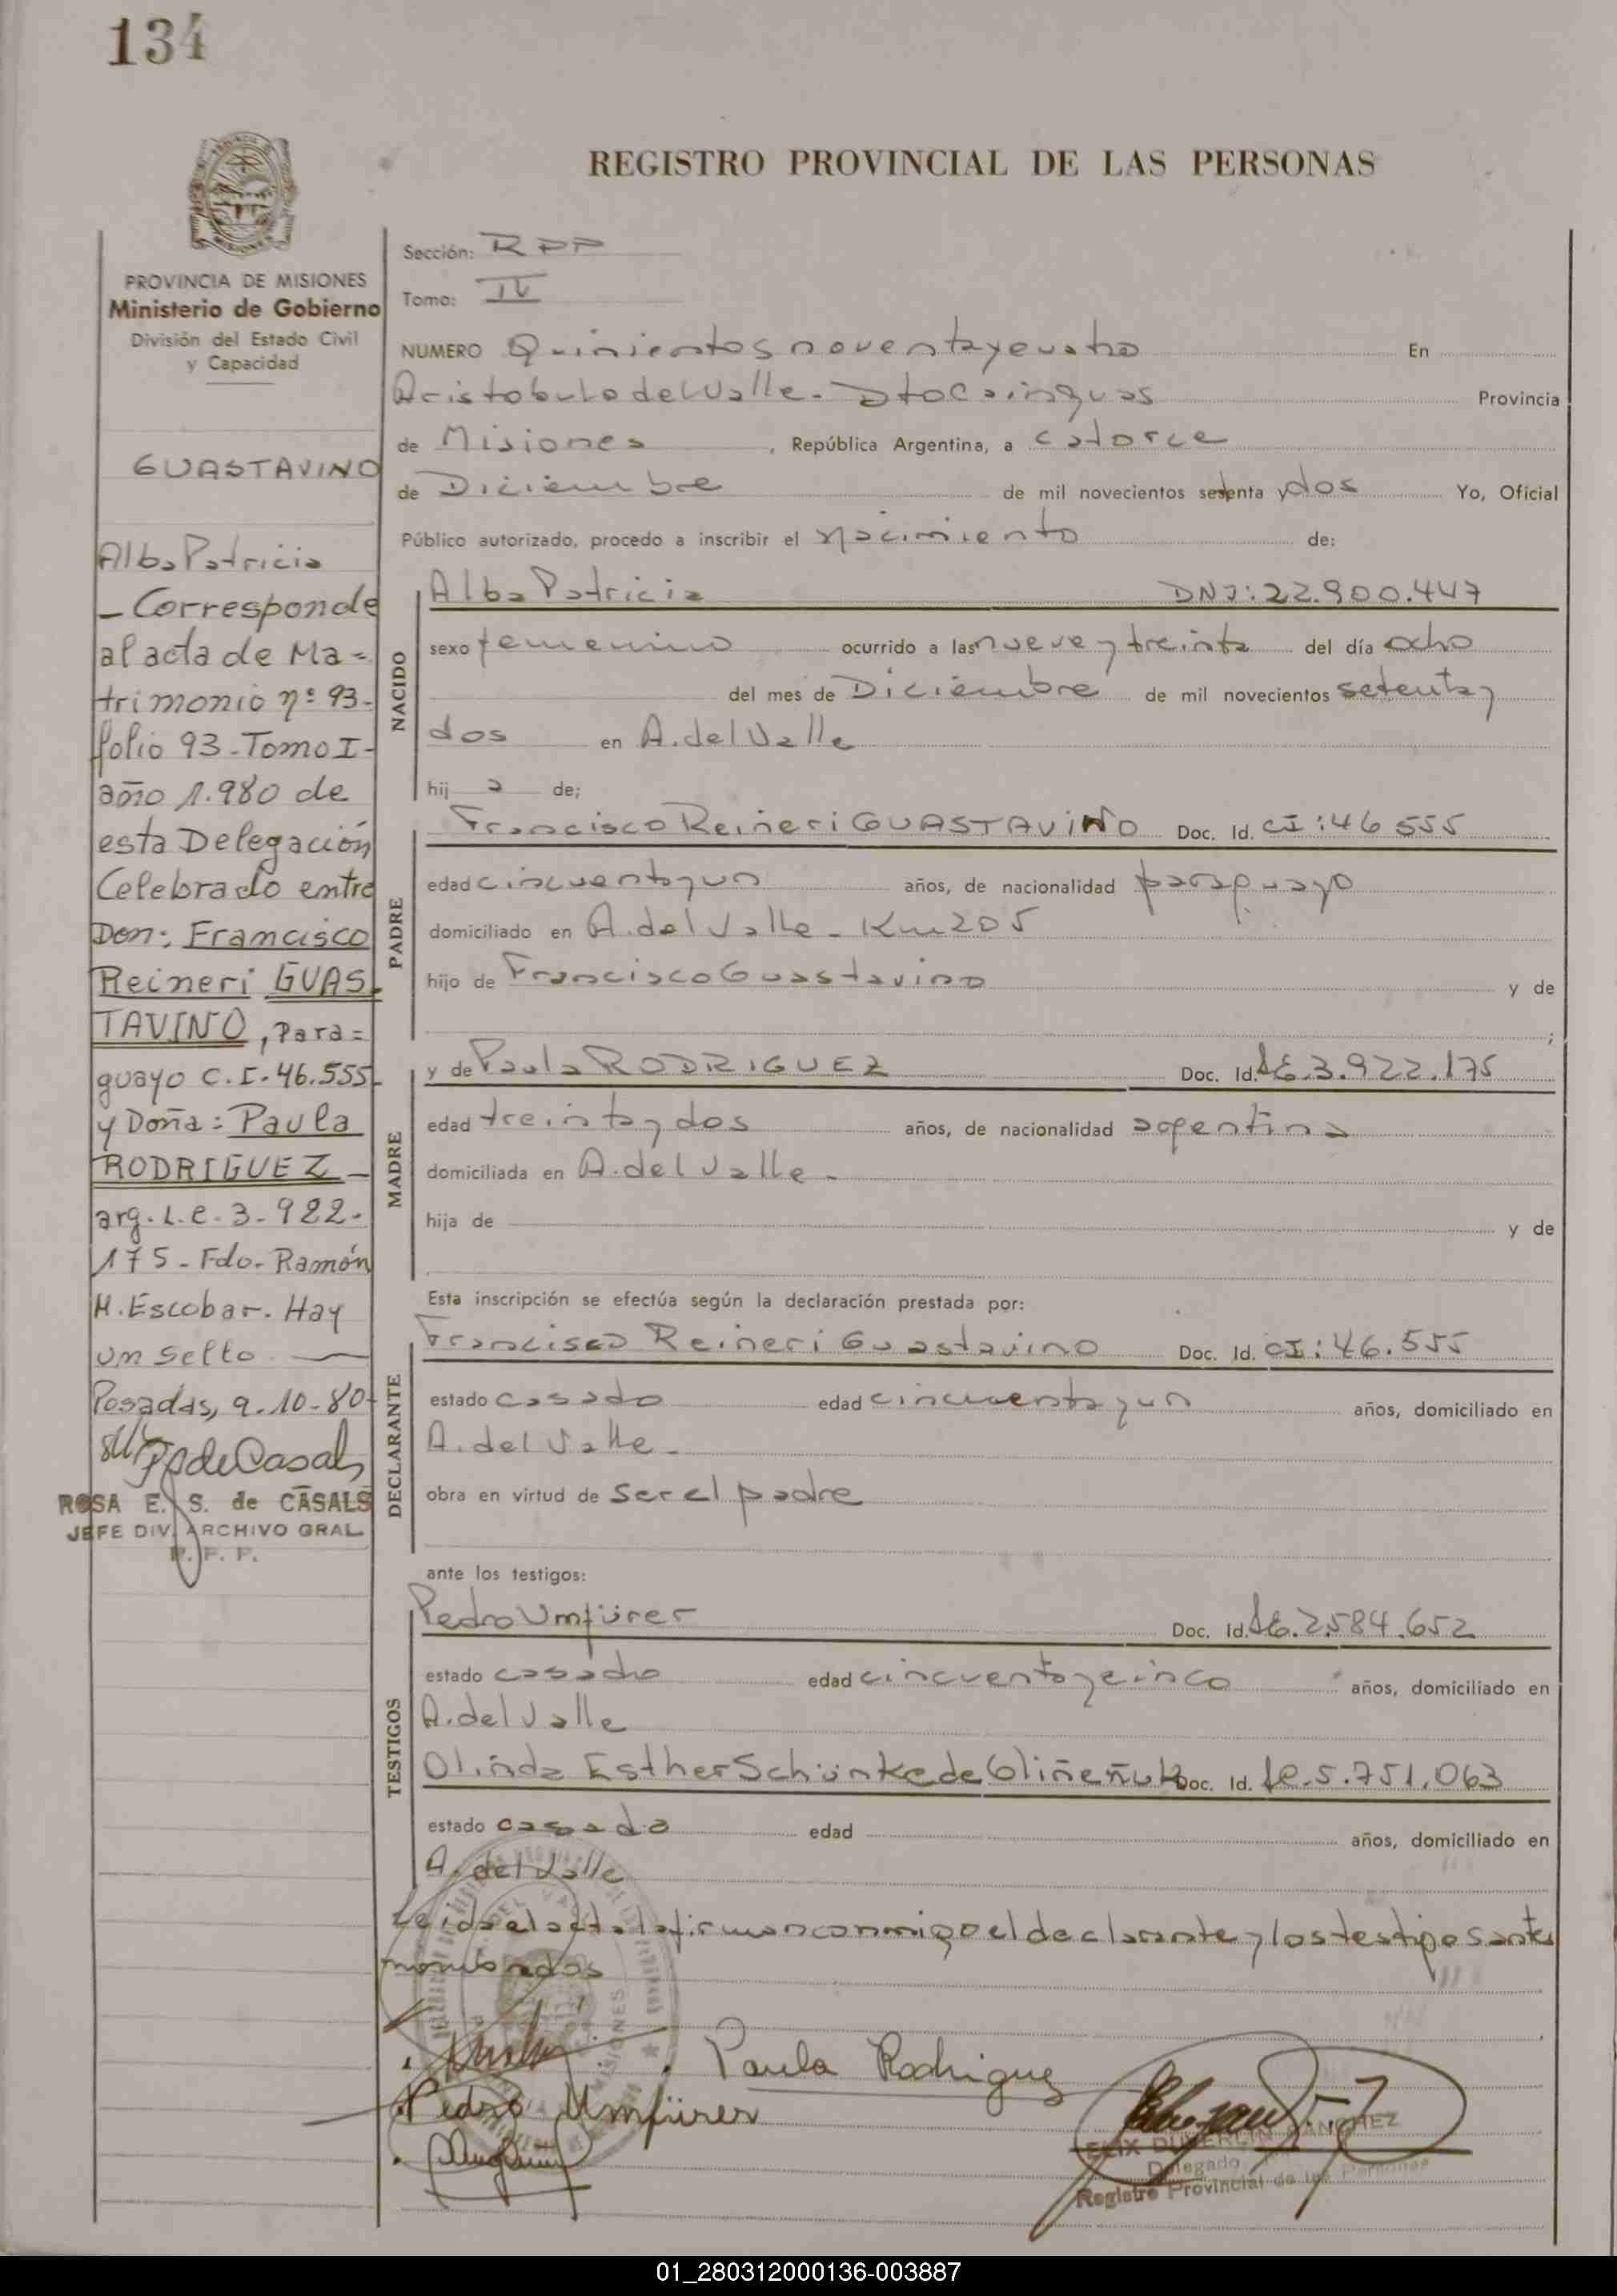 134
REGISTRO PROVINCIAL DE LAS PERSONAS
PROVINCIA DE MISIONES
Ministerio de Gobierno
División del Estado Civil
y Capacidad
GUASTAVINO
Alba Patricia
- Corresponde
al acta de Ma=
trimonio nº 93-
folio 93-Tomo I-
año 1.980 de
esta Delegación
Celebrado entre
Don: Francisco
Reineri GUAS-
TAVINO, Para=
guayo C.I. 46.555-
y Doña: Paula
RODRIGUEZ -
arg. L.C. 3-922-
175 - Fdo. Ramón
H. Escobar. Hay
un sello.
Posadas, 9-10-80-
ROSA E. S. de CASALS
JEFE DIV. ARCHIVO GRAL.
R. P. P.
Sección: RPP
Tomo: IV
NUMERO Quinientos noventa y cuatro En
Aristobulo del Valle - Dto Cainguas Provincia
de Misiones, República Argentina, a catorce
de Diciembre de mil novecientos setenta y dos Yo, Oficial
Público autorizado, procedo a inscribir el nacimiento de:
NACIDO
Alba Patricia DNI: 22.900.447
sexo femenino ocurrido a las nueve y treinta del día ocho
del mes de Diciembre de mil novecientos setenta y
dos en A. del Valle
hij a de;
PADRE
Francisco Reineri GUASTAVINO Doc. Id. CI: 46 555
edad cincuenta y un años, de nacionalidad paraguayo
domiciliado en A. del Valle - Km 205
hijo de Francisco Guastavino y de
;
MADRE
y de Paula RODRIGUEZ Doc. Id. 3.922.175
edad treinta y dos años, de nacionalidad argentina
domiciliada en A. del Valle -
hija de y de
Esta inscripción se efectúa según la declaración prestada por:
DECLARANTE
Francisco Reineri Guastavino Doc. Id. CI: 46.555
estado casado edad cincuenta y un años, domiciliado en
A. del Valle -
obra en virtud de ser el padre
ante los testigos:
TESTIGOS
Pedro Umfürer Doc. Id. 2.584.652
estado casado edad cincuenta y cinco años, domiciliado en
A. del Valle
Olinda Esther Schünke de Doc. Id. 5.751.063
estado casada edad años, domiciliado en
A. del Valle
Leida el acta la firman conmigo el declarante y los testigos antes
nombrados
Paula Rodriguez
Pedro Umfürer
FELIX SANCHEZ
Delegado
Registro Provincial de las Personas
01_280312000136-003887